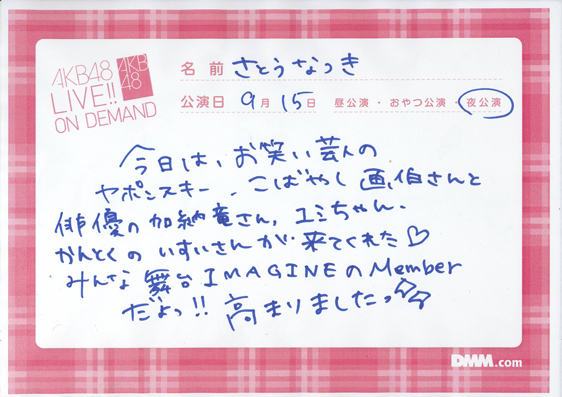 AKB48
LIVE!!
ON DEMAND
AKB
48
名前 さとうなつき
公演日 9月15日 昼公演・おやつ公演・夜公演
今日は、お笑い芸人の
ヤポンスキー、こばやし画伯さんと
俳優の加納竜さん、ユミちゃん、
かんとくのいすいさんが来てくれた♡
みんな舞台IMAGINEのMember
だよっ!! 高まりましたっ
DMM.com